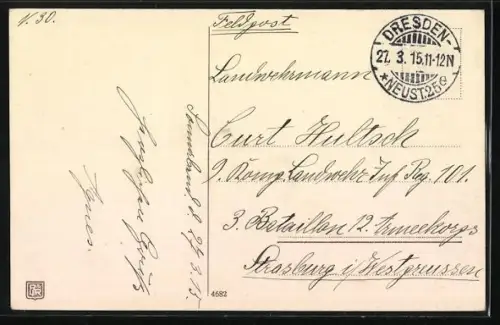 N. 30.
Feldpost
DRESDEN-
27. 3. 15.11-12N
* NEUST.25e
Landwehrmann
Curt Hultsch
9. König. Landwehr Inf. Reg. 101.
3. Bataillon 12. Armeekorps
Strasburg i/Westpreussen
Sonnabend, d. 27.3.15.
Herzliche Grüße
Agnes.
4682